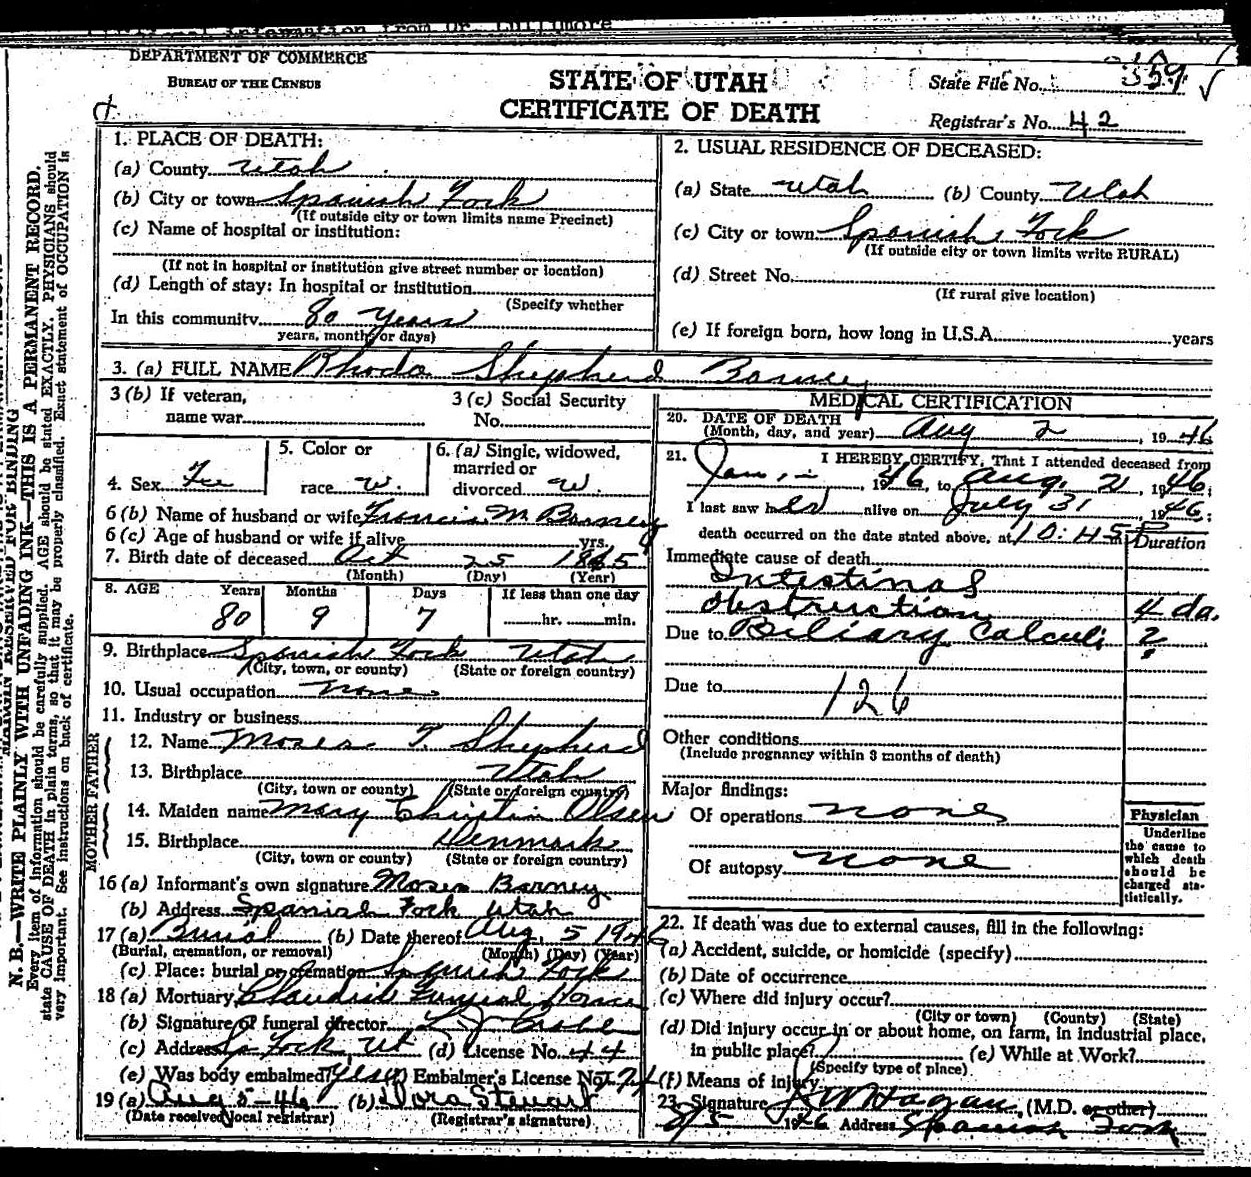 DEPARTMENT OF COMMERCE
BUREAU OF THE CENSUS
STATE OF UTAH
CERTIFICATE OF DEATH
State File No. 359
Registrar's No. 42
N. B.—WRITE PLAINLY WITH UNFADING INK—THIS IS A PERMANENT RECORD.
Every item of information should be carefully supplied. AGE should be stated EXACTLY. PHYSICIANS should
state CAUSE OF DEATH in plain terms, so that it may be properly classified. Exact statement of OCCUPATION is
very important. See instructions on back of certificate.
1. PLACE OF DEATH:
(a) County Utah
(b) City or town Spanish Fork
(If outside city or town limits name Precinct)
(c) Name of hospital or institution:
(If not in hospital or institution give street number or location)
(d) Length of stay: In hospital or institution
(Specify whether
In this community 80 years
years, months or days)
2. USUAL RESIDENCE OF DECEASED:
(a) State Utah (b) County Utah
(c) City or town Spanish Fork
(If outside city or town limits write RURAL)
(d) Street No.
(If rural give location)
(e) If foreign born, how long in U.S.A. years
3. (a) FULL NAME Rhoda Shepherd Barney
3 (b) If veteran,
name war
3 (c) Social Security
No.
4. Sex Fe
5. Color or
race W.
6. (a) Single, widowed,
married or
divorced W.
6 (b) Name of husband or wife Francis M Barney
6 (c) Age of husband or wife if alive yrs.
7. Birth date of deceased Oct 25 1865
(Month) (Day) (Year)
8. AGE Years Months Days If less than one day
80 9 7 hr. min.
9. Birthplace Spanish Fork Utah
(City, town, or county) (State or foreign country)
10. Usual occupation none
11. Industry or business
FATHER
12. Name Moses T. Shepherd
13. Birthplace Utah
(City, town or county) (State or foreign country)
MOTHER
14. Maiden name Mary Christin Olsen
15. Birthplace Denmark
(City, town or county) (State or foreign country)
16 (a) Informant's own signature Moses Barney
(b) Address Spanish Fork Utah
17 (a) Burial (b) Date thereof Aug. 5 1946
(Burial, cremation, or removal) (Month) (Day) (Year)
(c) Place: burial or cremation Spanish Fork
18 (a) Mortuary Claudin Funeral Home
(b) Signature of funeral director
(c) Address Sp Fork, Ut (d) License No. 44
(e) Was body embalmed? yes Embalmer's License No.
19 (a) Aug 5-46 (b) Dora Stewart
(Date received local registrar) (Registrar's signature)
MEDICAL CERTIFICATION
20. DATE OF DEATH
(Month, day, and year) Aug 2, 1946
21. I HEREBY CERTIFY, That I attended deceased from
Jan. , 1946, to Aug. 2, 1946;
I last saw her alive on July 31, 1946;
death occurred on the date stated above, at 10:45 P
Duration
Immediate cause of death
Intestinal
obstruction 4 da.
Due to Biliary Calculi ?
Due to 126
Other conditions
(Include pregnancy within 3 months of death)
Major findings:
Of operations none
Of autopsy none
Physician
Underline
the cause to
which death
should be
charged sta-
tistically.
22. If death was due to external causes, fill in the following:
(a) Accident, suicide, or homicide (specify)
(b) Date of occurrence
(c) Where did injury occur?
(City or town) (County) (State)
(d) Did injury occur in or about home, on farm, in industrial place,
in public place? (e) While at Work?
(Specify type of place)
(f) Means of injury
23. Signature Hagan, (M.D. or other)
8/5 1946 Address Spanish Fork